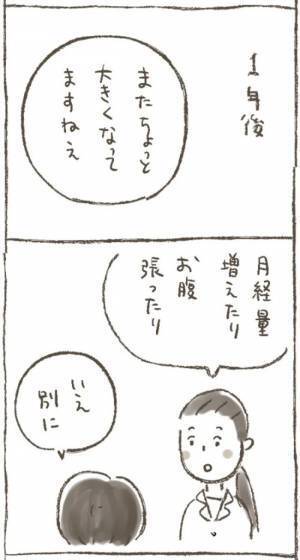 1年後
またちょっと
大きくなって
ますねえ
月経量
増えたり
お腹
張ったり
いえ
別に